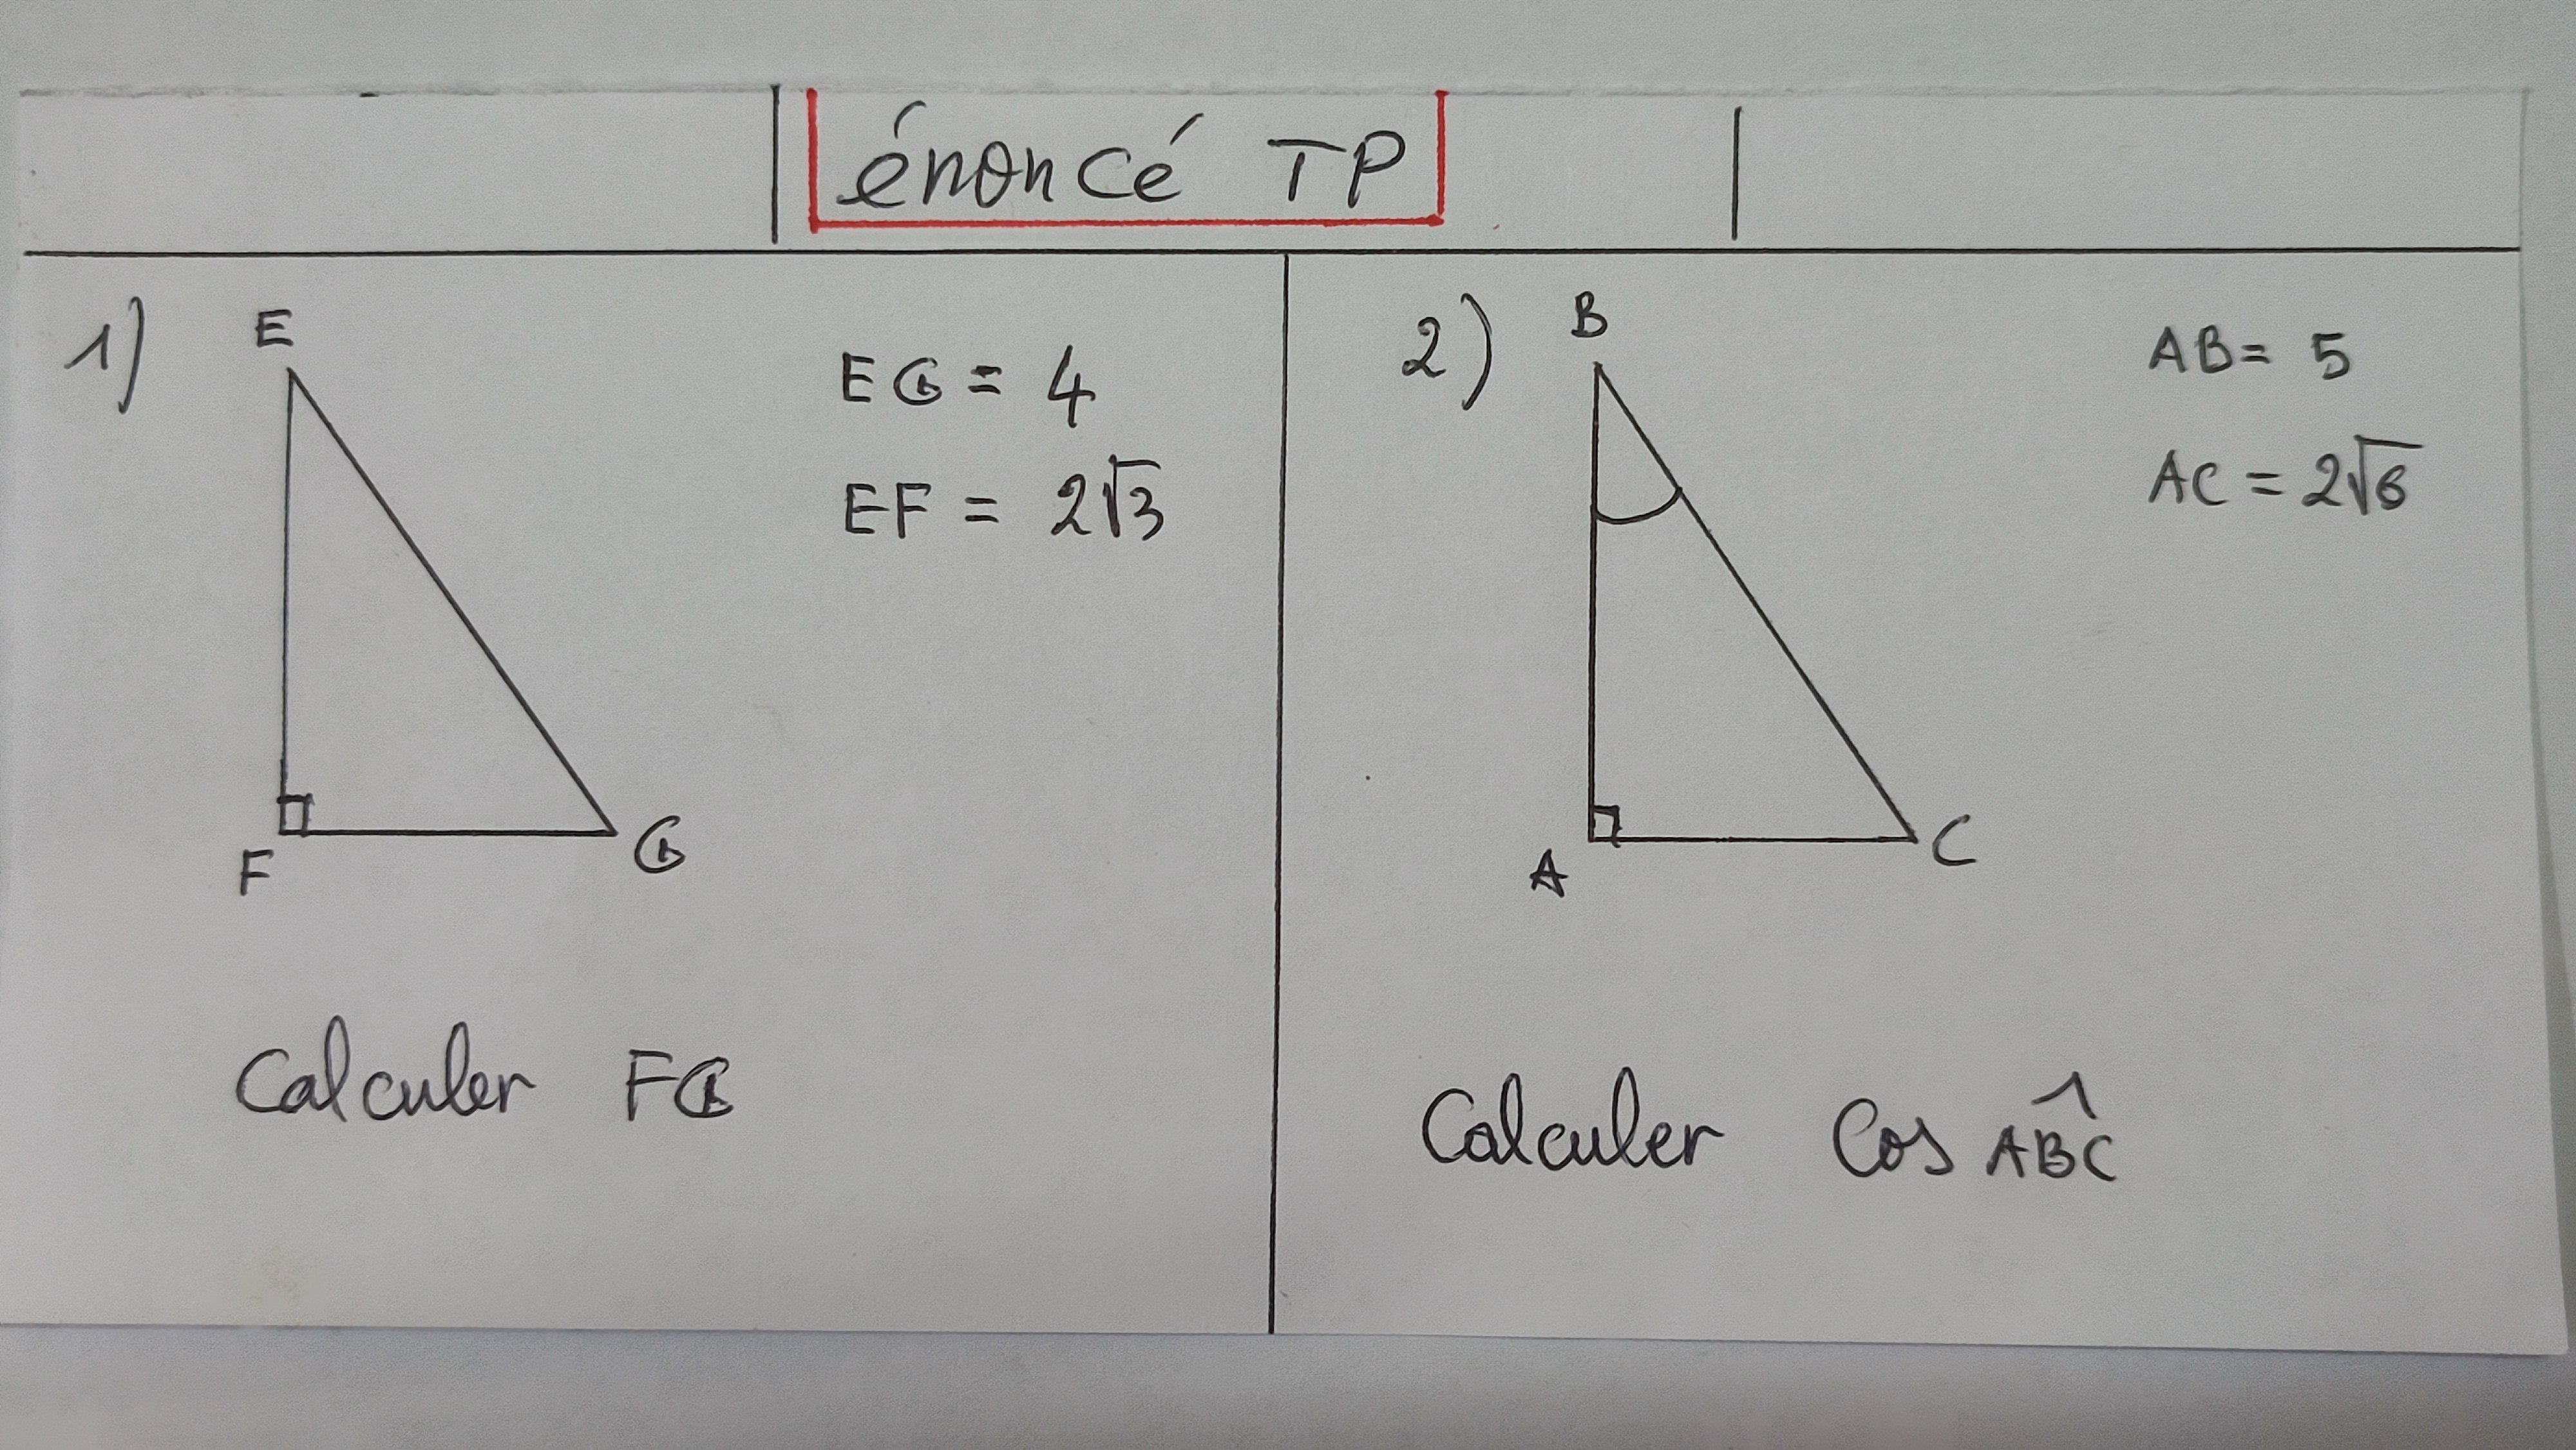 énoncé TP
1)
E
EG = 4
EF = 2√3
F
G
Calculer FG
2)
B
AB = 5
AC = 2√6
A
C
Calculer Cos ABC^